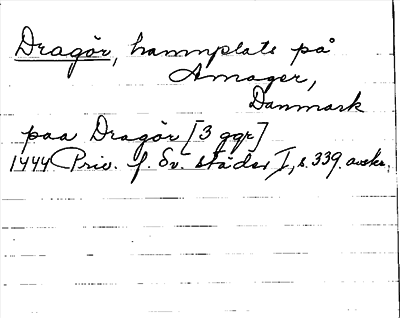 Dragör, hamnplats på
Amager,
Danmark
paa Dragör [3 ggr]
1444 Priv. f. Sv. städer I, s. 339. avskr.